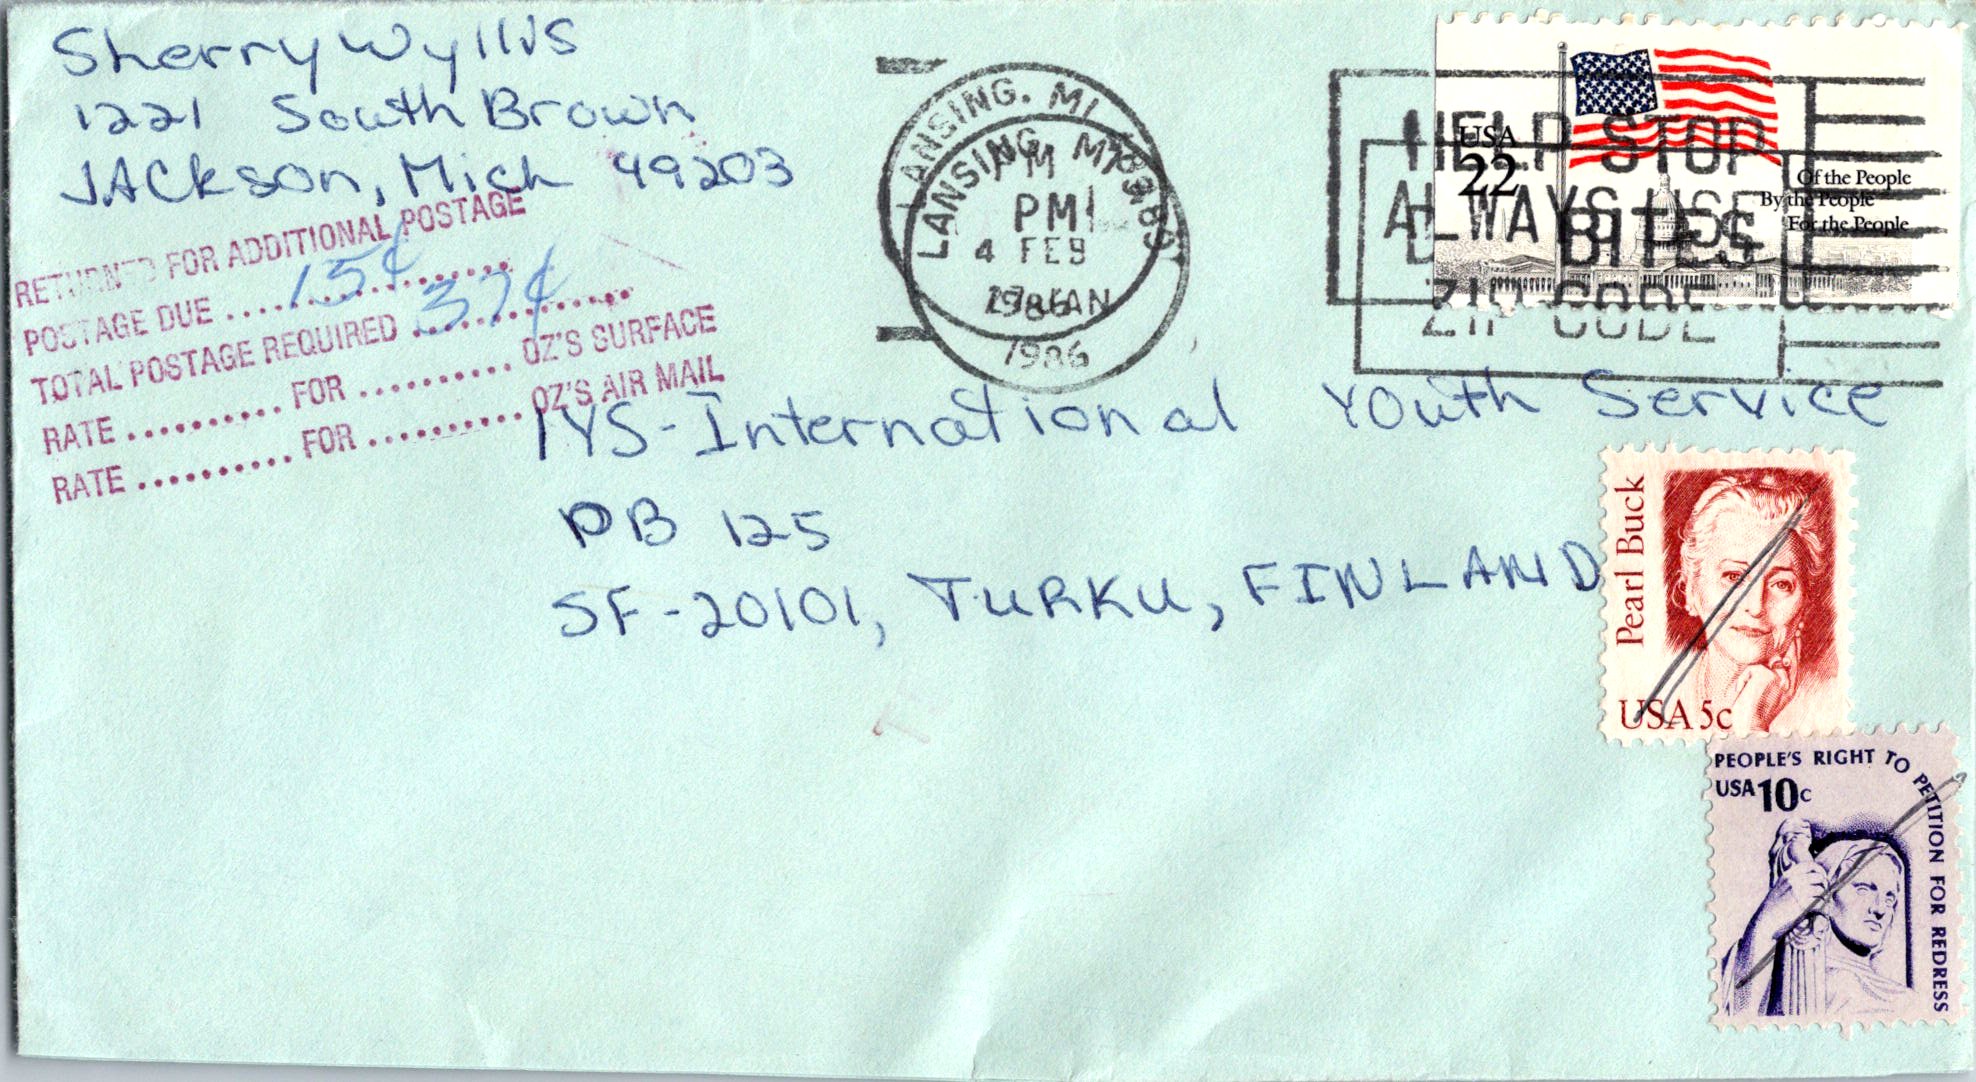 Sherry Wyllis
1221 South Brown
JACkson, Mich 49203
RETURNED FOR ADDITIONAL POSTAGE
POSTAGE DUE .... 15¢ ........
TOTAL POSTAGE REQUIRED .. 37¢ ........
RATE .......... FOR .......... OZ'S SURFACE
RATE .......... FOR .......... OZ'S AIR MAIL
LANSING, MI
LANSING, MI 489
PM
4 FEB
1986
JAN
1986
HELP STOP
ALWAYS USE
BITES
ZIP CODE
USA
22
Of the People
By the People
For the People
IYS-International Youth Service
PB 125
SF-20101, TURKU, FINLAND
Pearl Buck
USA 5c
PEOPLE'S RIGHT TO PETITION FOR REDRESS
USA 10c